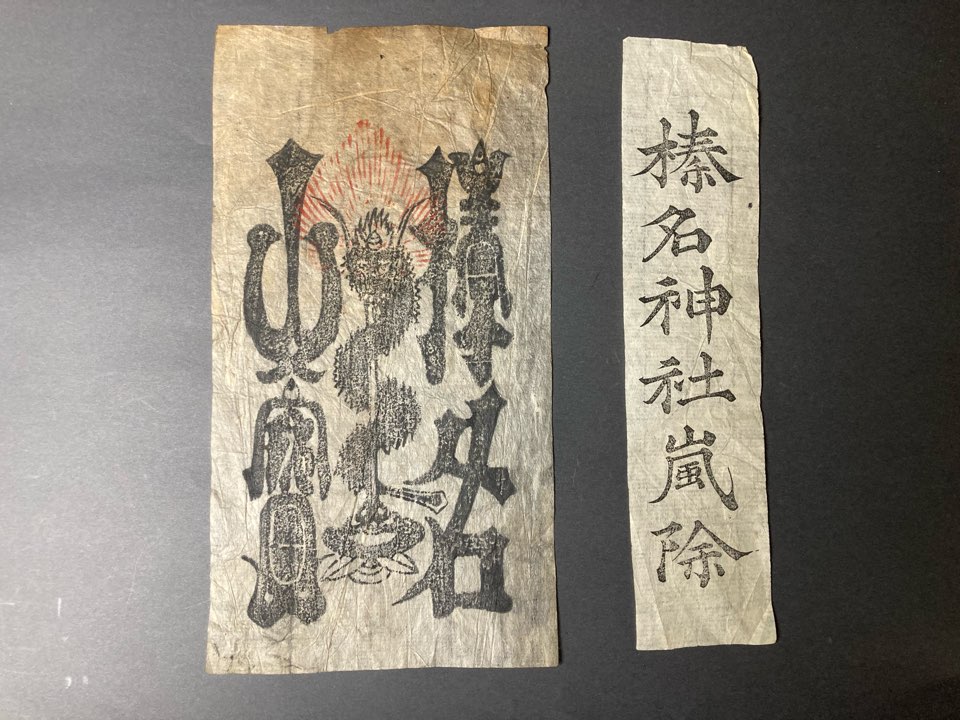 榛名神社嵐除
榛名
山寳